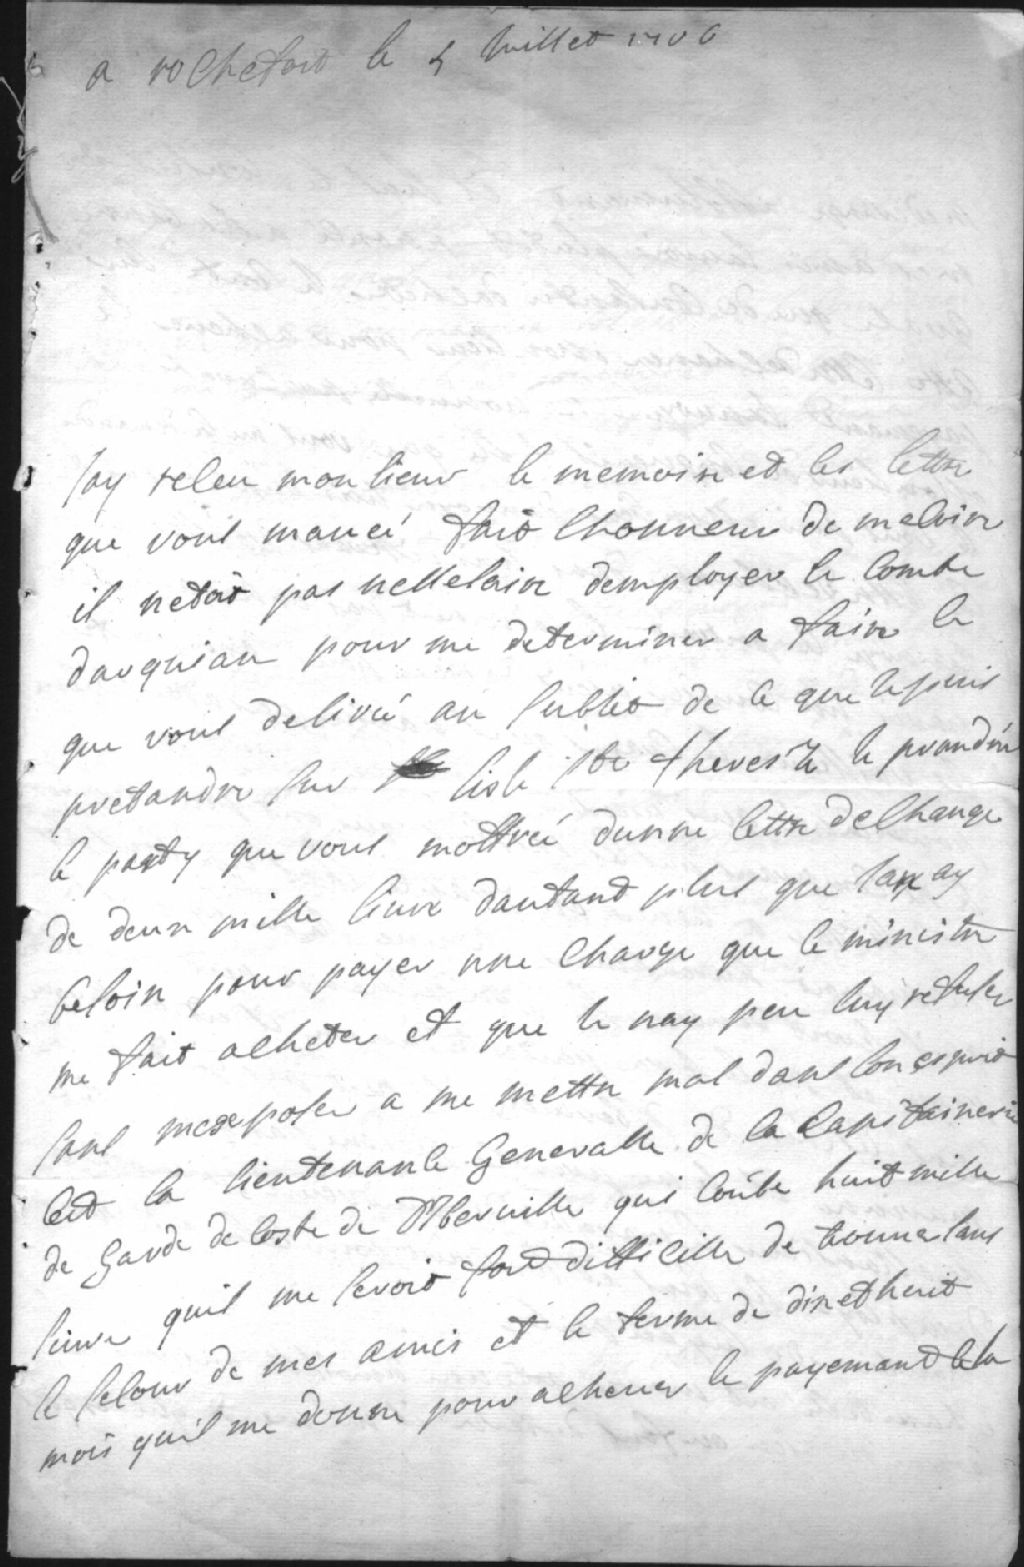 a rochefort le 5 Juillet 1706
Jay releu monsieur le memoire et les lettre
que vous maveé fait lhonneur de mecrire
il netoit pas nessesaire demployer le comte
darquian pour me determiner a faire ce
que vous desireé au subiet de ce que ie puis
pretandre sur lisle ste theresse ie prandré
le party que vous moffreé dunne lettre dechange
de deux mille livre dautant plus que ian ay
besoin pour payer une charge que le ministre
me fait acheter et que ie nay peu luy refuser
sans mexposer a me mettre mal dans son esprit
cest la lieutenance Generalle de la capitainerie
de Garde de coste de qui coute huit mille
livre quil me seroit fort difficille de trouver sans
le secour de mes amis et le terme de dix et huit
mois quil me donne pour achever le payemant de la